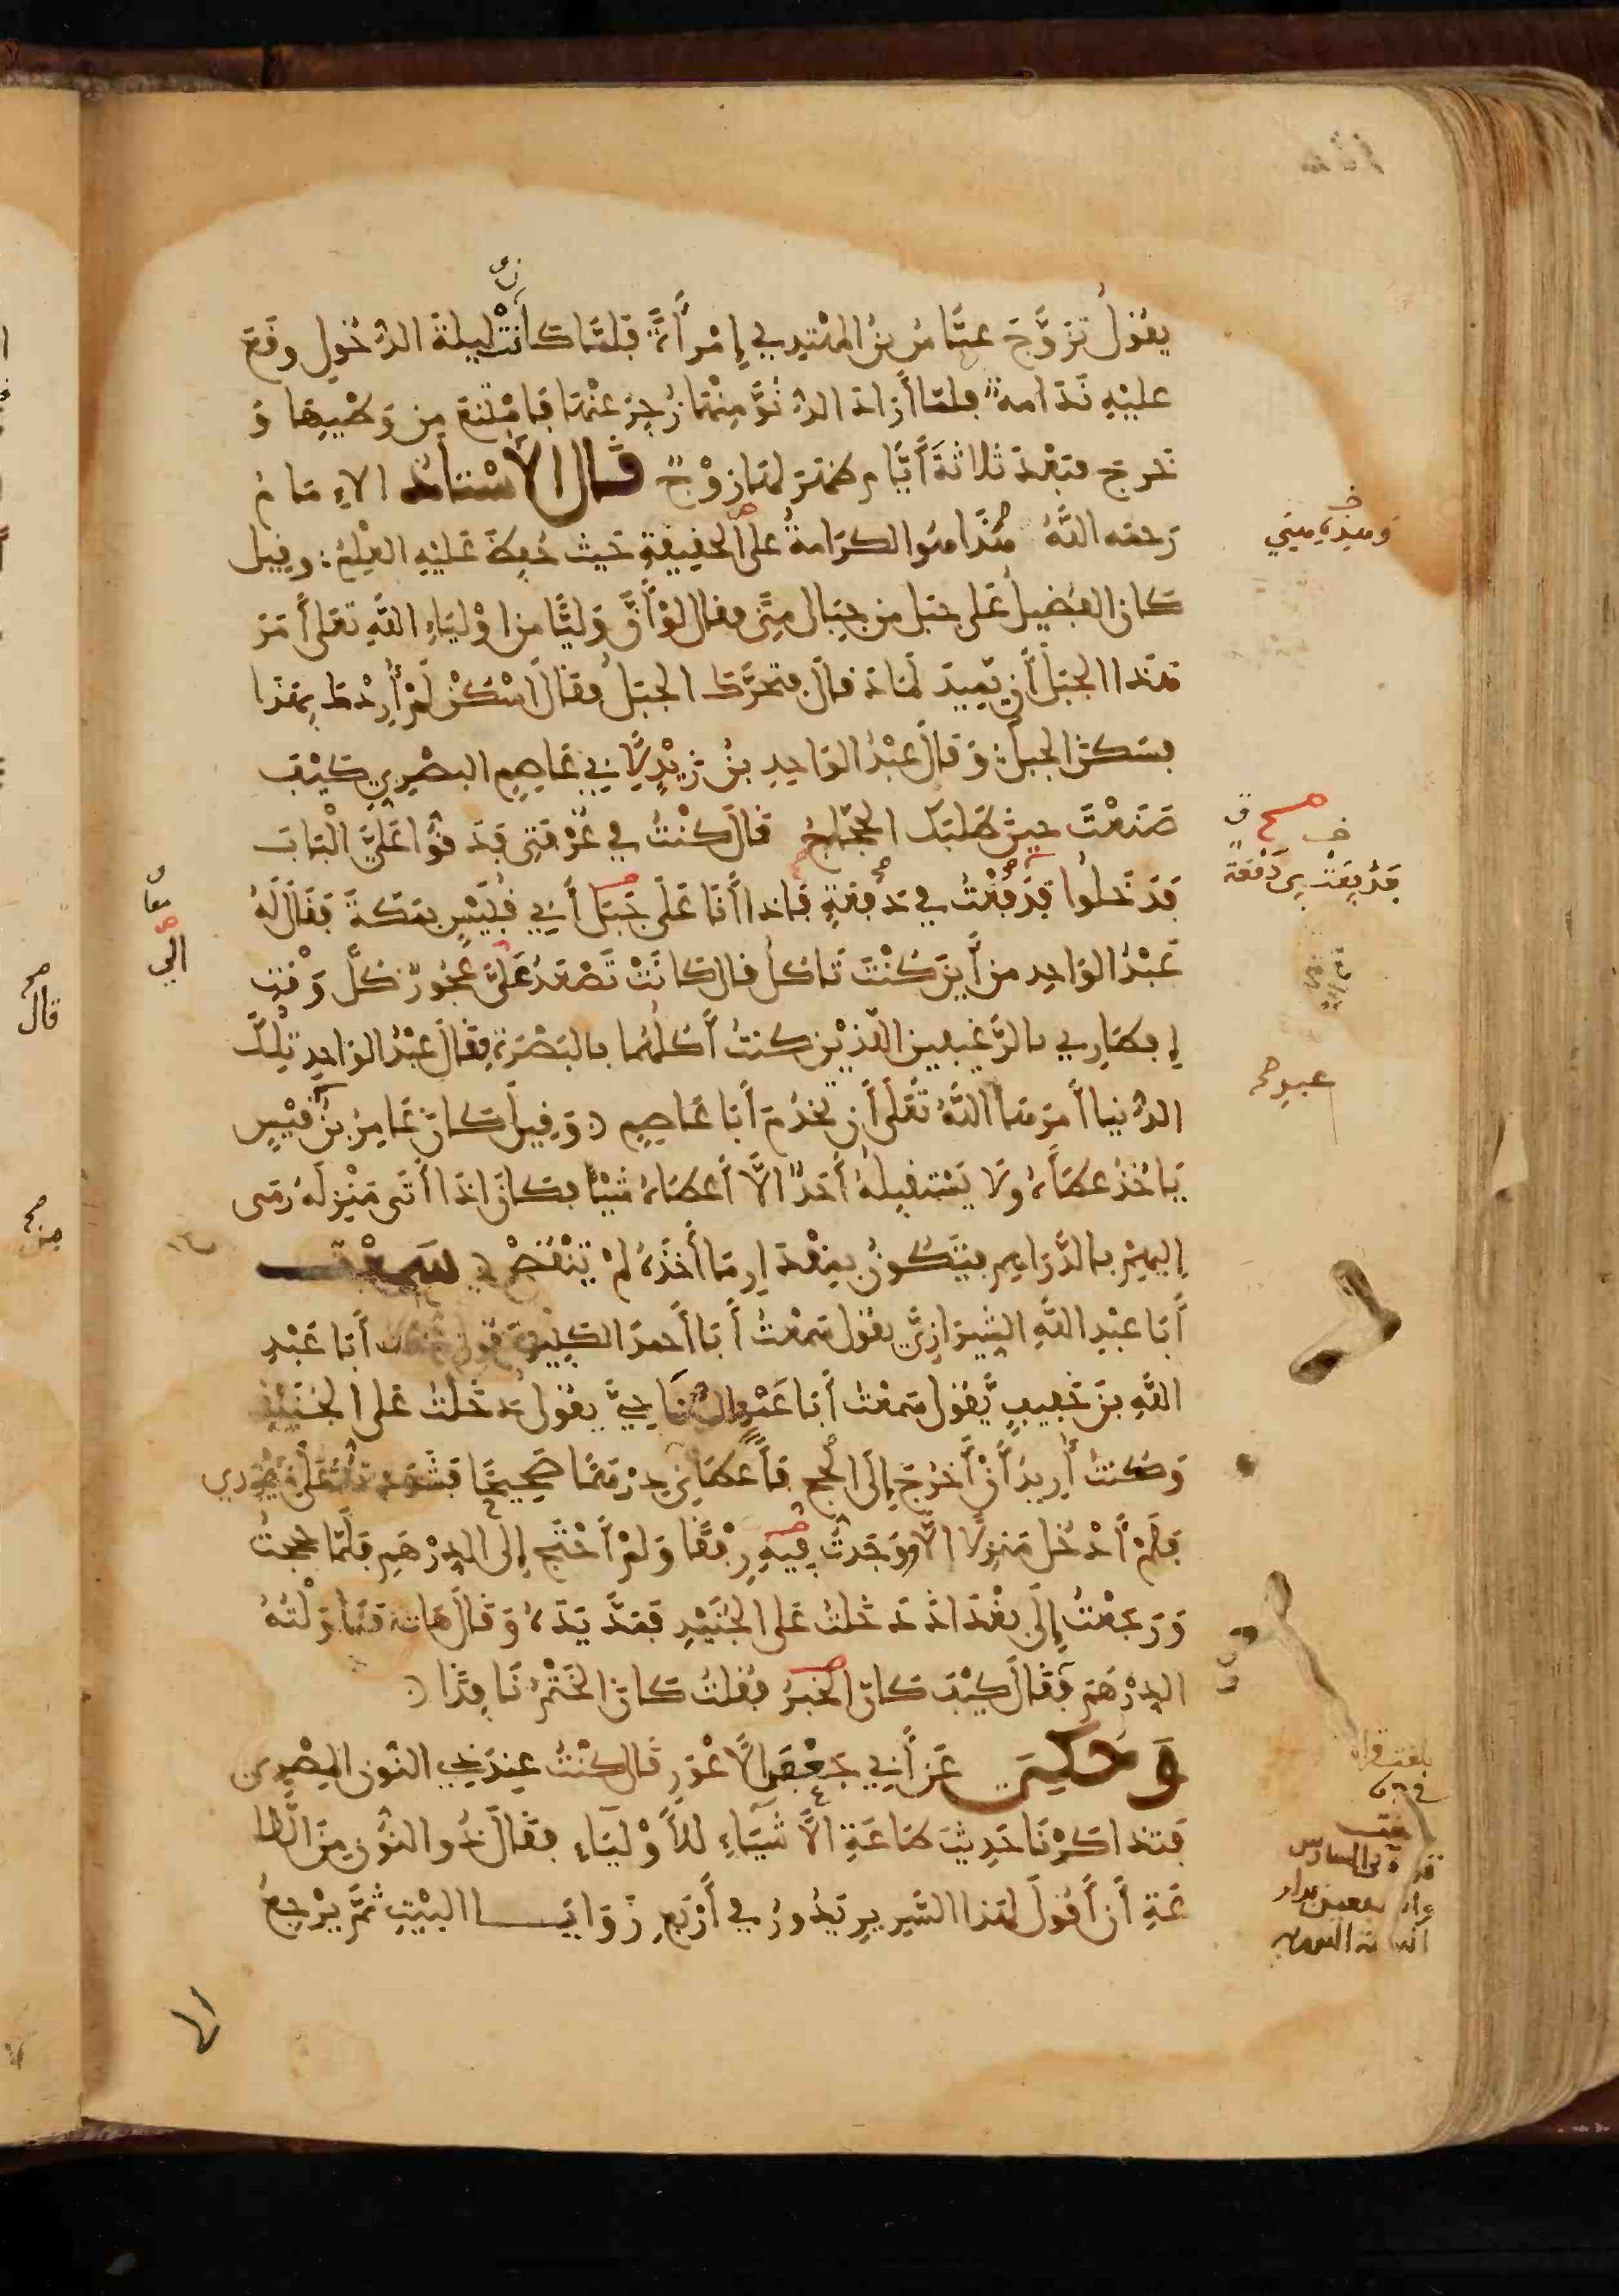 يقُولُ تَزَوَّجَ عبَّاسُ بنُ المهْتدِي إِمْرَأَةً فَلمَّا كَانَتْ ليلةَ الدُّخُولِ وقَعَ
عليْهِ نَدَامةٌ فلمَّا أَرَادَ الدُّنُوَّ مِنْهَا زُجِرَ عنْهَا فَامْتَنعَ مِن وَطْيِهَا وَ
خَرجَ فبَعْدَ ثلاثةِ أَيَّامٍ ظهَرَ لهَا زوْجٌ قَالَ الأُسْتَاذُ الإمَامُ
رَحمَه اللَّهُ هَذَا هُوَ الكرَامةُ عَلى الحَقِيقَةِ حَيث حُفِظَ عَليْهِ العِلْمُ وقيل
كانَ الفُضيلُ عَلى جبَل مِن جِبَال مِنًى فقال لوْ أَنَّ وَليًّا من اوْليَاءِ اللَّهِ تَعَلى أَمَرَ
هَذا الجبَلَ أَن يَّمِيدَ لمَادَ قالَ فتحَرَّكَ الجبَلُ فقَالَ اسْكُنْ لَمْ أُرِدْكَ بِهَذَا
فسَكنَ الجبلُ وَقَالَ عبْدُ الوَاحِدِ بنُ زَيْدٍ لِأَبِي عَاصِمِ البصْرِي كيْفَ
صَنَعْتَ حِينَ طَلبَكَ الحجَّاجُ قَالَ كنْتُ فِي غُرْفَتِي فَدَقُّوا عَلَيَّ الْبَابَ
فَدَخَلُوا فَدَفَعْتُ في دَفعَةٍ فَإذا أَنَا عَلَى جَبَلِ أَبِي قُبَيْسٍ بمَكةَ فَقَالَ لهُ
عَبْدُ الوَاحِدِ مِن أَينَ كُنْتَ تَاكُلُ قال كَانَتْ تَصْعَدُ عَلَيَّ عَجُوزٌ كُلَّ وَقْتِ
إِفطَارِي بالرَّغيفينِ الَّذَيْنِ كنتُ أَكُلُهُمَا بالبَصْرَةِ فقَالَ عبْدُ الوَاحِدِ تِلْكَ
الدُّنيا أَمَرَهَا اللَّهُ تَعَلَى أَن تَخْدُمَ أَبَا عَاصِمٍ وَقِيلَ كانَ عَامِرُ بنُ قَيْسٍ
يَاخُذُ عطَاءَهُ ولَا يَسْتَقبِلهُ أَحَدٌ إلَّا أَعطَاهُ شَيْئًا فكَانَ إذَا أَتَى مَنْزِلَهُ رَمَى
إِليهِمْ بالدَّرَاهِمِ فتَكُونُ بِمِقْدَارِ مَا أَخَذَهُ لمْ تَنْقُصْ سَمِعْتُ
أَبَا عبْدِ اللَّهِ الشِّيرَازِيَّ يقُول سَمعْتُ أَبَا أَحمدَ الكَبِيرَ يَقُول سَمعْتُ أَبَا عَبْدِ
اللَّهِ بنَ خَفِيفٍ يَّقُول سَمعْتُ أَبَا عَمْرٍو الزُّجَاجِيَّ يقُول دَخَلتُ عَلى الجُنَيْدِ
وَكنتُ أُرِيدُ أَنْ أَخرُجَ إلَى الحَج فَأَعْطَانِي دِرْهَمًا صَحِيحًا فشَدَدْتُّهُ عَلى مِيزَرِي
فَلَمْ أَدْخُل مَنزِلًا إلَّا وَجَدتُّ فِيهِ رِفْقًا وَلَمْ أَحْتَجِ إِلَى الدِرْهَمِ فلَمَّا حججتُ
وَرَجَعْتُ إِلَى بغْدَادَ دَخَلتُ عَلى الجُنَيْدِ فَمَدَّ يَدَهُ وَقَالَ هَاتِ فنَاوَلْتُهُ
الدِرْهَمَ فَقَالَ كيْفَ كَانَ الخَبَرُ فقُلتُ كَانَ الخَتْمُ نَافِذًا
وَحُكِيَ عَن أَبِي جَعْفَرٍ الأَعْوَرِ قَال كنْتُ عِندَ ذِي النُّونِ المِصْرِي
فتَذاكَرْنَا حَدِيثَ طَاعَةِ الأَشْيَاءِ للأَوْليَاءِ فقَالَ ذُو النُّونِ مِنَ الطَّا
عَةِ أَن أَقُولَ لِهَذا السَّرِيرِ يَدُورُ فِي أَرْبَعِ زَوَايَا البَيْتِ ثمَّ يَرْجِعُ
فَدُفِعْتُ بِي دَفْعَة
إلى
قال